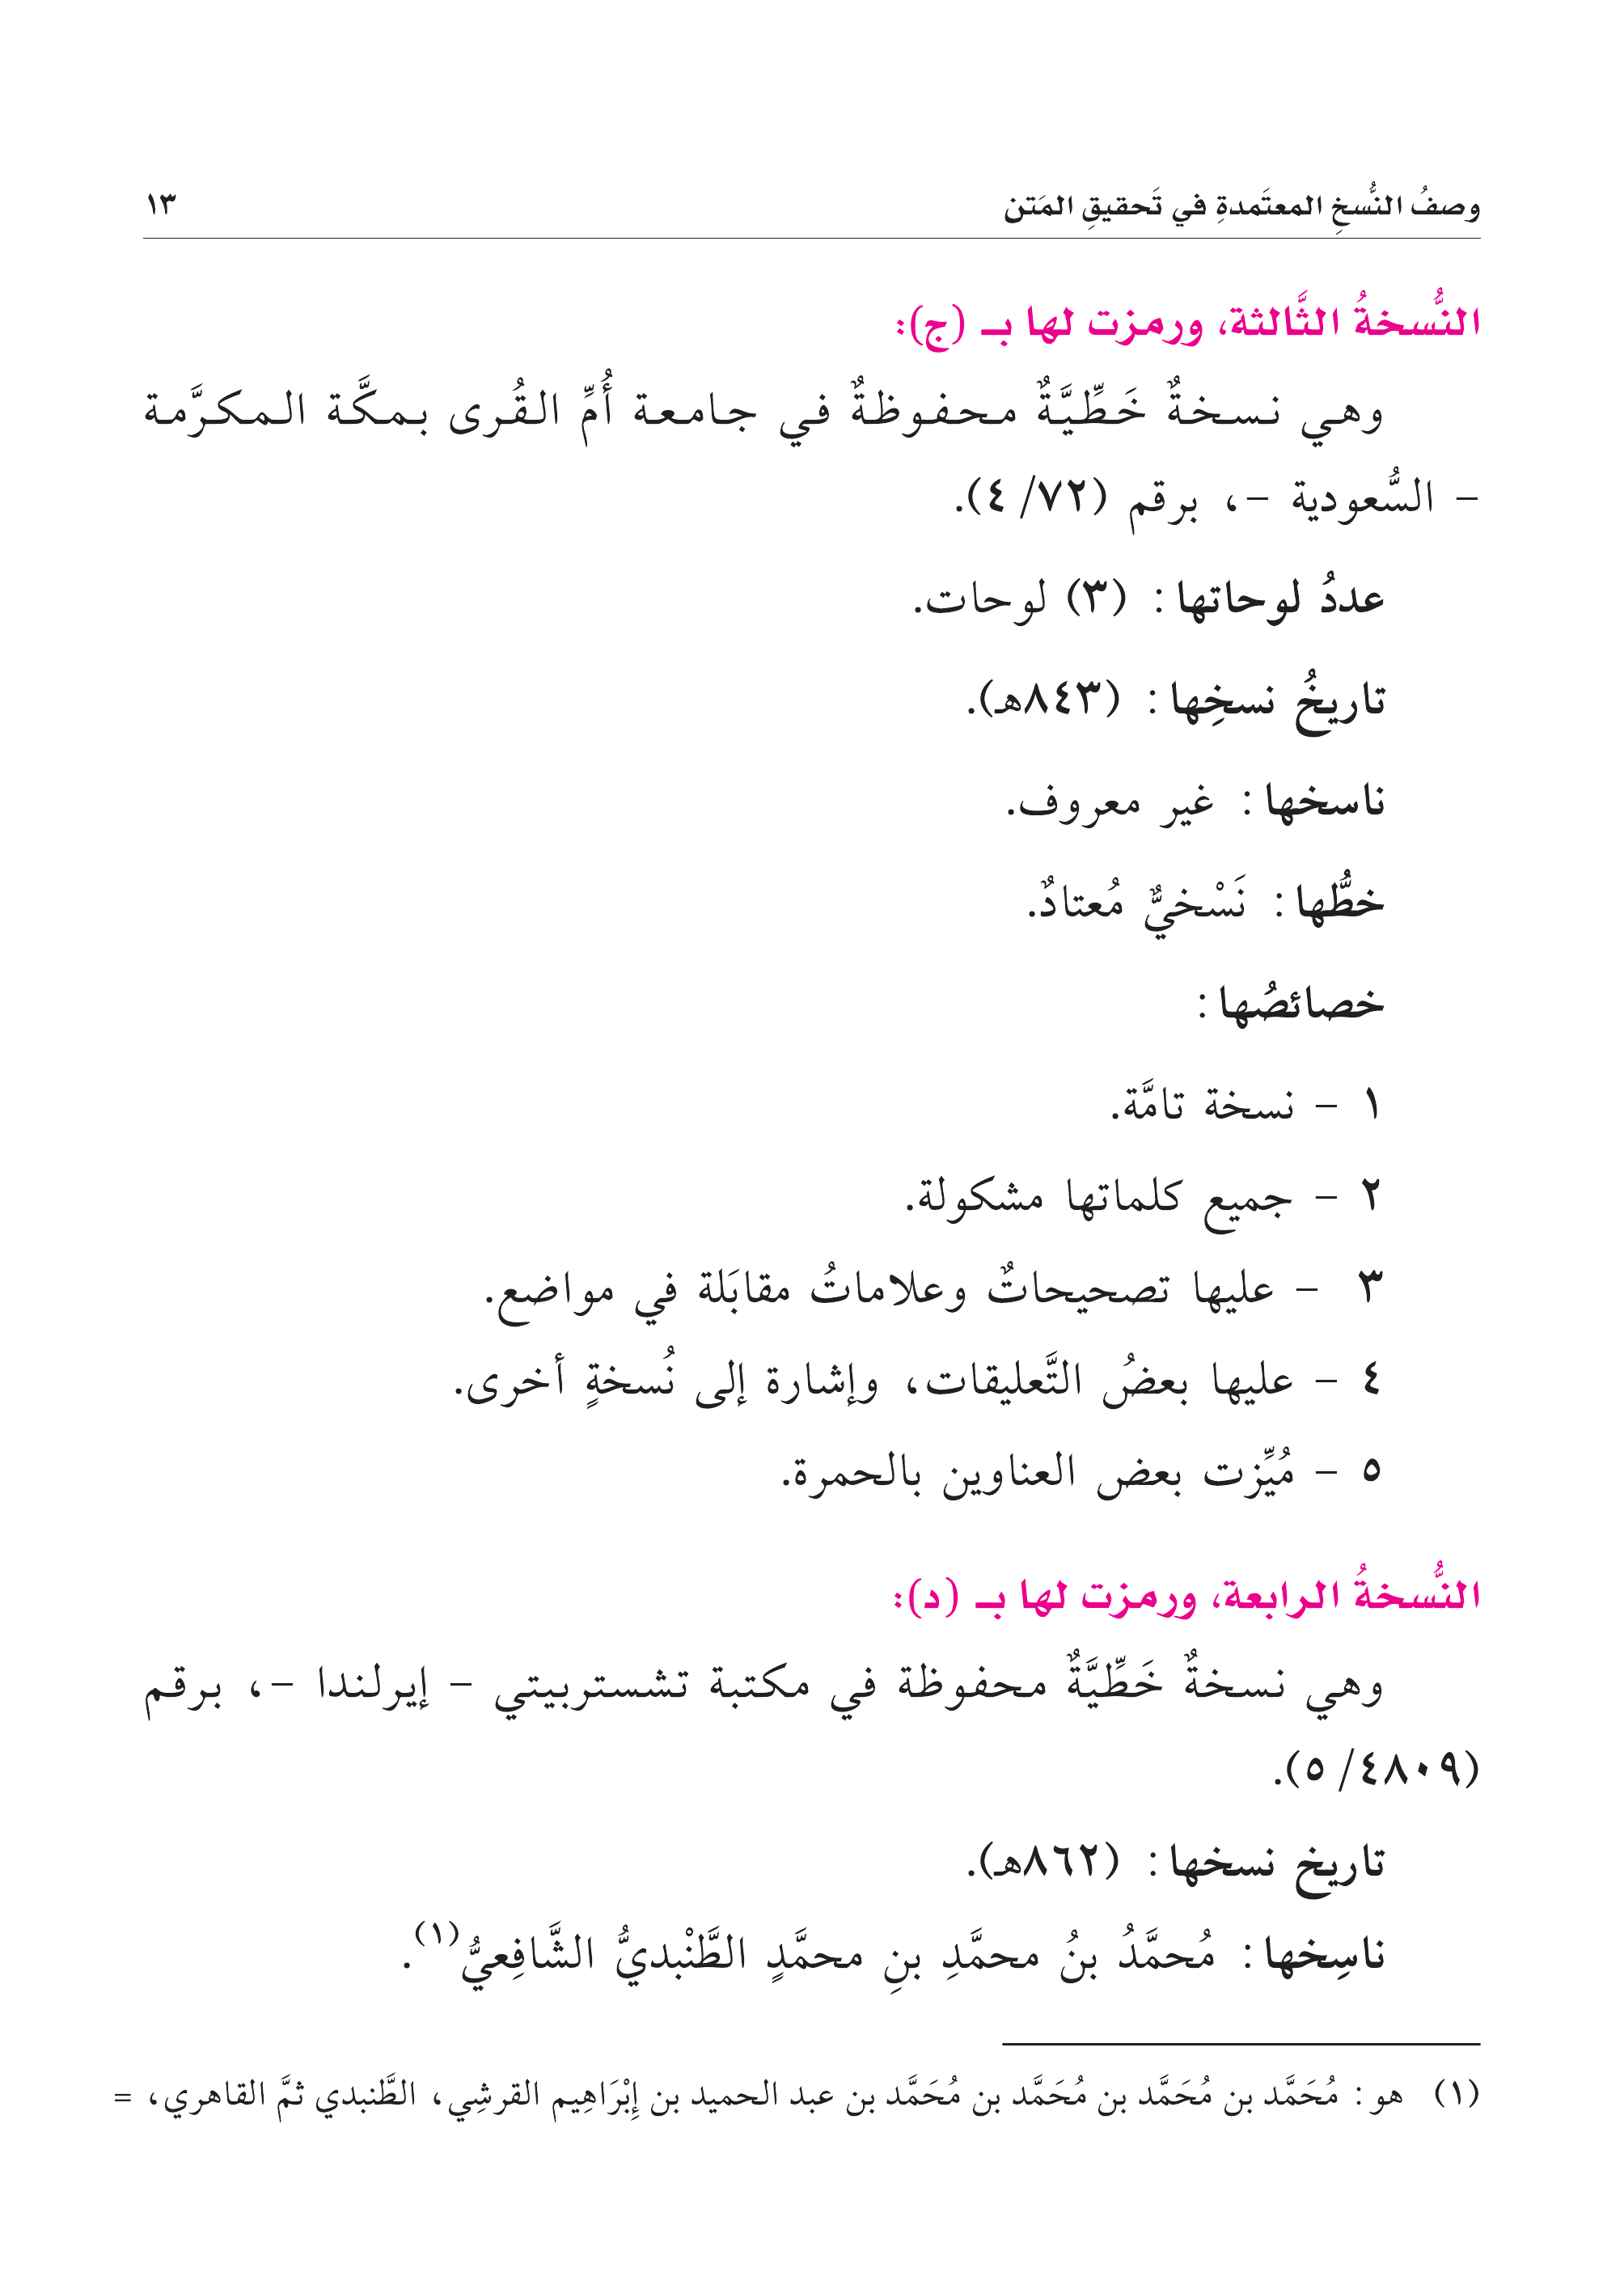 وصفُ النُّسخِ المعتَمدةِ في تَحقيقِ المَتن ١٣
النُّسخةُ الثَّالثة، ورمزت لها بـ (ج):
وهي نسخةٌ خَطِّيَّةٌ محفوظةٌ في جامعة أُمِّ القُرى بمكَّة المكرَّمة
- السُّعودية -، برقم (٧٢/ ٤).
عددُ لوحاتها: (٣) لوحات.
تاريخُ نسخِها: (٨٤٣هـ).
ناسخها: غير معروف.
خطُّها: نَسْخيٌّ مُعتادٌ.
خصائصُها:
١ - نسخة تامَّة.
٢ - جميع كلماتها مشكولة.
٣ - عليها تصحيحاتٌ وعلاماتُ مقابَلة في مواضع.
٤ - عليها بعضُ التَّعليقات، وإشارة إلى نُسخةٍ أخرى.
٥ - مُيِّزت بعض العناوين بالحمرة.
النُّسخةُ الرابعة، ورمزت لها بـ (د):
وهي نسخةٌ خَطِّيَّةٌ محفوظة في مكتبة تشستربيتي - إيرلندا -، برقم
(٤٨٠٩/ ٥).
تاريخ نسخها: (٨٦٢هـ).
ناسِخها: مُحمَّدُ بنُ محمَّدِ بنِ محمَّدٍ الطَّنْبديُّ الشَّافِعيُّ(١).
(١) هو: مُحَمَّد بن مُحَمَّد بن مُحَمَّد بن مُحَمَّد بن عبد الحميد بن إِبْرَاهِيم القرشِي، الطَّنبدي ثمَّ القاهري، =